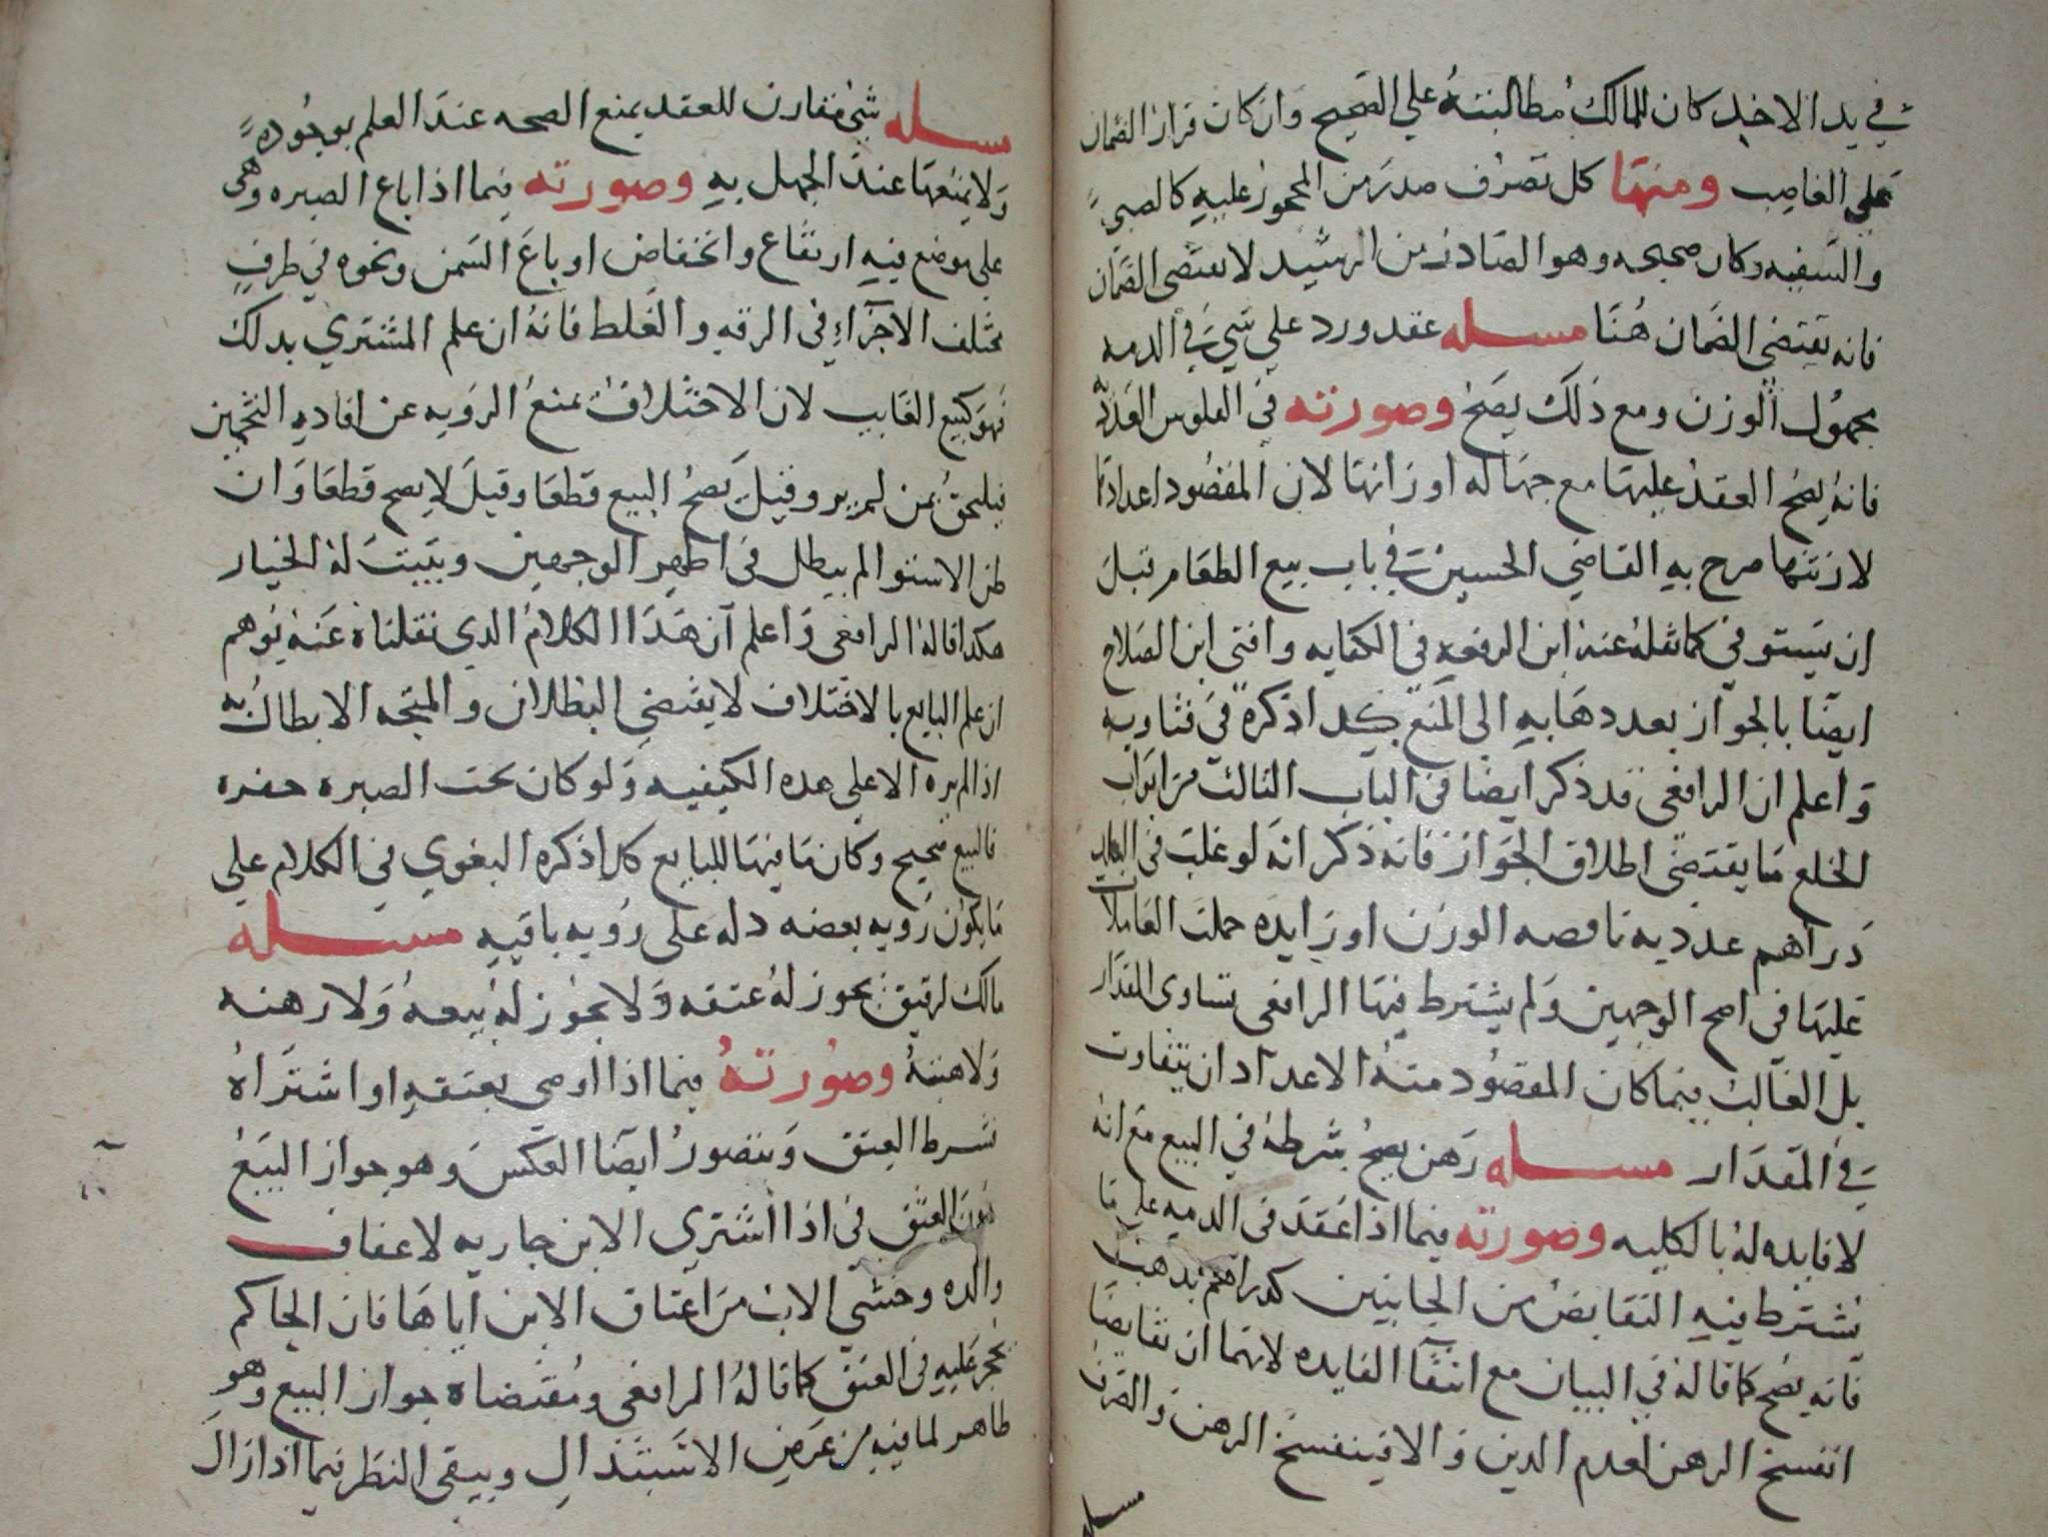 في يد الاخذ كان للمالك مطالبته علي الصحيح وان كان قرار الضمان
علي الغاصب ومنها كل تصرف صدر من المحجور عليه كالصبي
والسفيه وكان صحيحه وهو الصادر من الرشيد لا يقتضي الضمان
فانه يقتضي الضمان هنا مسله عقد ورد علي شي في الدمه
مجهول الوزن ومع ذلك يصح وصورته في الفلوس العدديه
فانه يصح العقد عليها مع جهاله اوزانها لان المقصود اعدادها
لازنتها صرح به القاضي الحسين في باب بيع الطعام قبل
ان يستوفي كما نقله عنه ابن الرفعه في الكفايه وافتي ابن الصلاح
ايضا بالجواز بعد دهابه الي المنع كدا ذكره في فتاويه
واعلم ان الرافعي قد ذكر ايضا في الباب الثالث من ابواب
الخلع ما يقتضي اطلاق الجواز فانه ذكر انه لو غلب في البلد
دراهم عدديه ناقصه الوزن او زايده حملت المعاملات
عليها في اصح الوجهين ولم يشترط فيها الرافعي تساوي المقدار
بل الغالب فيما كان المقصود منه الاعداد ان يتفاوت
في المقدار مسله رهن يصح شرطه في البيع مع انه
لا فايده له بالكليه وصورته فيما اذا عقد في الدمه علي ما
يشترط فيه التقابض من الجانبين كدراهم بدهب
فانه يصح كما قاله في البيان مع انتفا الفايده لانهما ان تقابضا
انفسخ الرهن لعدم الدين والا فينفسخ الرهن والصرف
مسله
مسله شي مقارن للعقد يمنع الصحه عند العلم بوجوده
ولا يمنعها عند الجهل به وصورته فيما اذا باع الصبره وهي
علي موضع فيه ارتفاع وانخفاض او باع السمن ونحوه في ظرف
مختلف الاجزاء في الرقه والغلط فانه ان علم المشتري بدلك
فهو كبيع الغايب لان الاختلاف يمنع الرويه عن افاده التخمين
فيلحق بمن لم ير وقيل يصح البيع قطعا وقيل لا يصح قطعا وان
ظن الاستوا لم يبطل في اظهر الوجهين ويثبت له الخيار
هكدا قاله الرافعي واعلم ان هدا الكلام الدي نقلناه عنه يوهم
ان علم البايع بالاختلاف لا يقتضي البطلان والمتجه الابطال به
اذا لم يره الا علي هده الكيفيه ولو كان تحت الصبره حفره
فالبيع صحيح وكان ما فيها للبايع كدا ذكره البغوي في الكلام علي
ما يكون رويه بعضه داله علي رويه باقيه مسله
مالك لرقيق يجوز له عتقه ولا يجوز له بيعه ولا رهنه
ولا هبته وصورته فيما اذا اوصي بعتقه او اشتراه
بشرط العتق ويتصور ايضا العكس وهو جواز البيع
دون العتق في اذا اشتري الابن جاريه لاعفاف
والده وخشي الابن من اعتاق الابن اياها فان الحاكم
يحجر عليه في العتق كما قاله الرافعي ومقتضاه جواز البيع وهو
ظاهر لما فيه من غرض الاستبدال ويبقي النظر فيما اذا زال